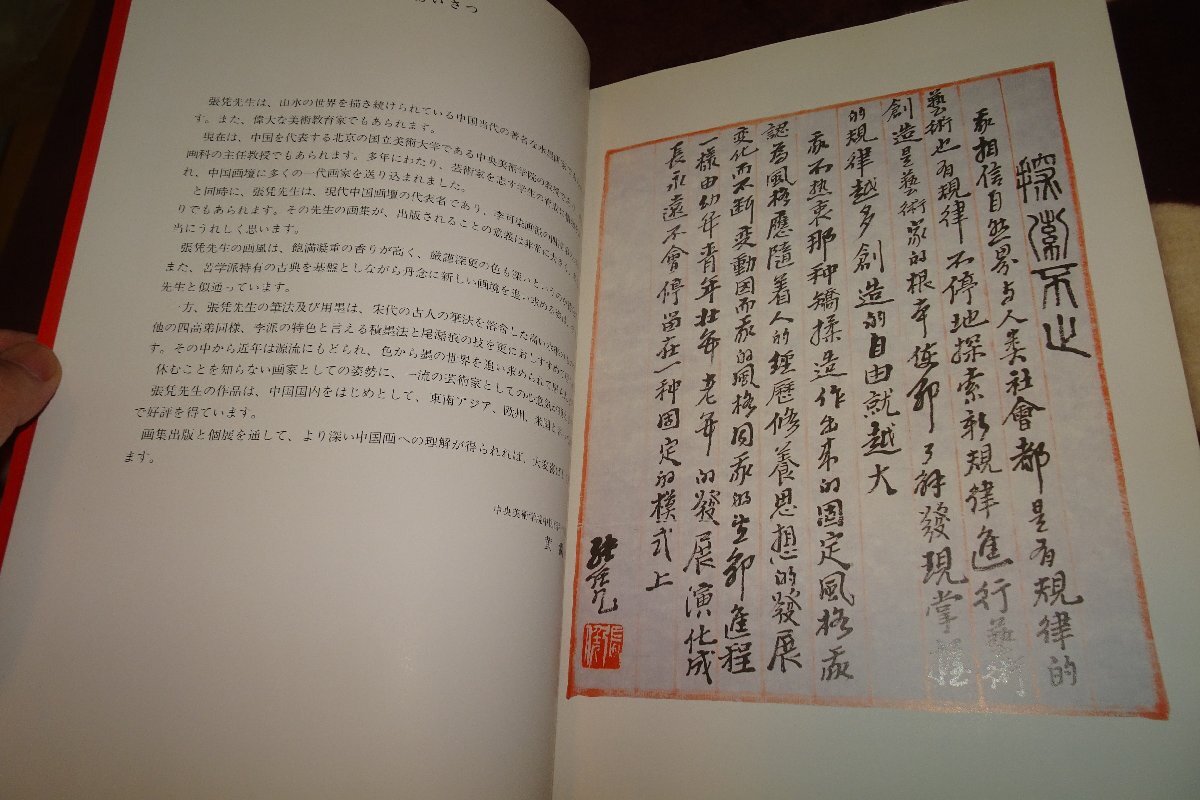 いさつ
張凭先生は、山水の世界を描き続けられている中国当代の著名な水墨画家で
す。また、偉大な美術教育家でもあられます。
現在は、中国を代表する北京の国立美術大学である中央美術学院の教授で
画科の主任教授でもあられます。多年にわたり、芸術家を志す学生の
れ、中国画壇に多くの一代画家を送り込まれました。
と同時に、張凭先生は、現代中国画壇の代表者であり、李可染画派の
りでもあられます。その先生の画集が、出版されることの意義は非常に大きく、
当にうれしく思います。
張凭先生の画風は、飽満凝重の香りが高く、厳謹深更の色も深いという
また、苦学派特有の古典を基盤としながら丹念に新しい画境を追い求める
先生と似通っています。
一方、張凭先生の筆法及び用墨は、宋代の古人の筆法を溶合した高い
他の四高弟同様、李派の特色と言える積墨法と尾漏痕の技を更におしすすめ
す。その中から近年は源流にもどられ、色から墨の世界を追い求められて
休むことを知らない画家としての姿勢に、一流の芸術家としての心意気
張凭先生の作品は、中国国内をはじめとして、東南アジア、欧州、米国
で好評を得ています。
画集出版と個展を通して、より深い中国画への理解が得られれば、大変
ます。
中央美術学院
探索不止
我相信自然界与人类社會都是有規律的
藝術也有規律不停地探索新規律進行藝術
創造是藝術家的根本使命了解發現掌握
的規律越多創造的自由就越大
我不热衷那种矯揉造作出来的固定風格我
認為風格應隨着人的經歷修養思想的發展
变化而不断变動因而我的風格同我的生命進程
一樣由幼年青年壮年老年的發展演化成
長永遠不會停留在一种固定的模式上
張凭